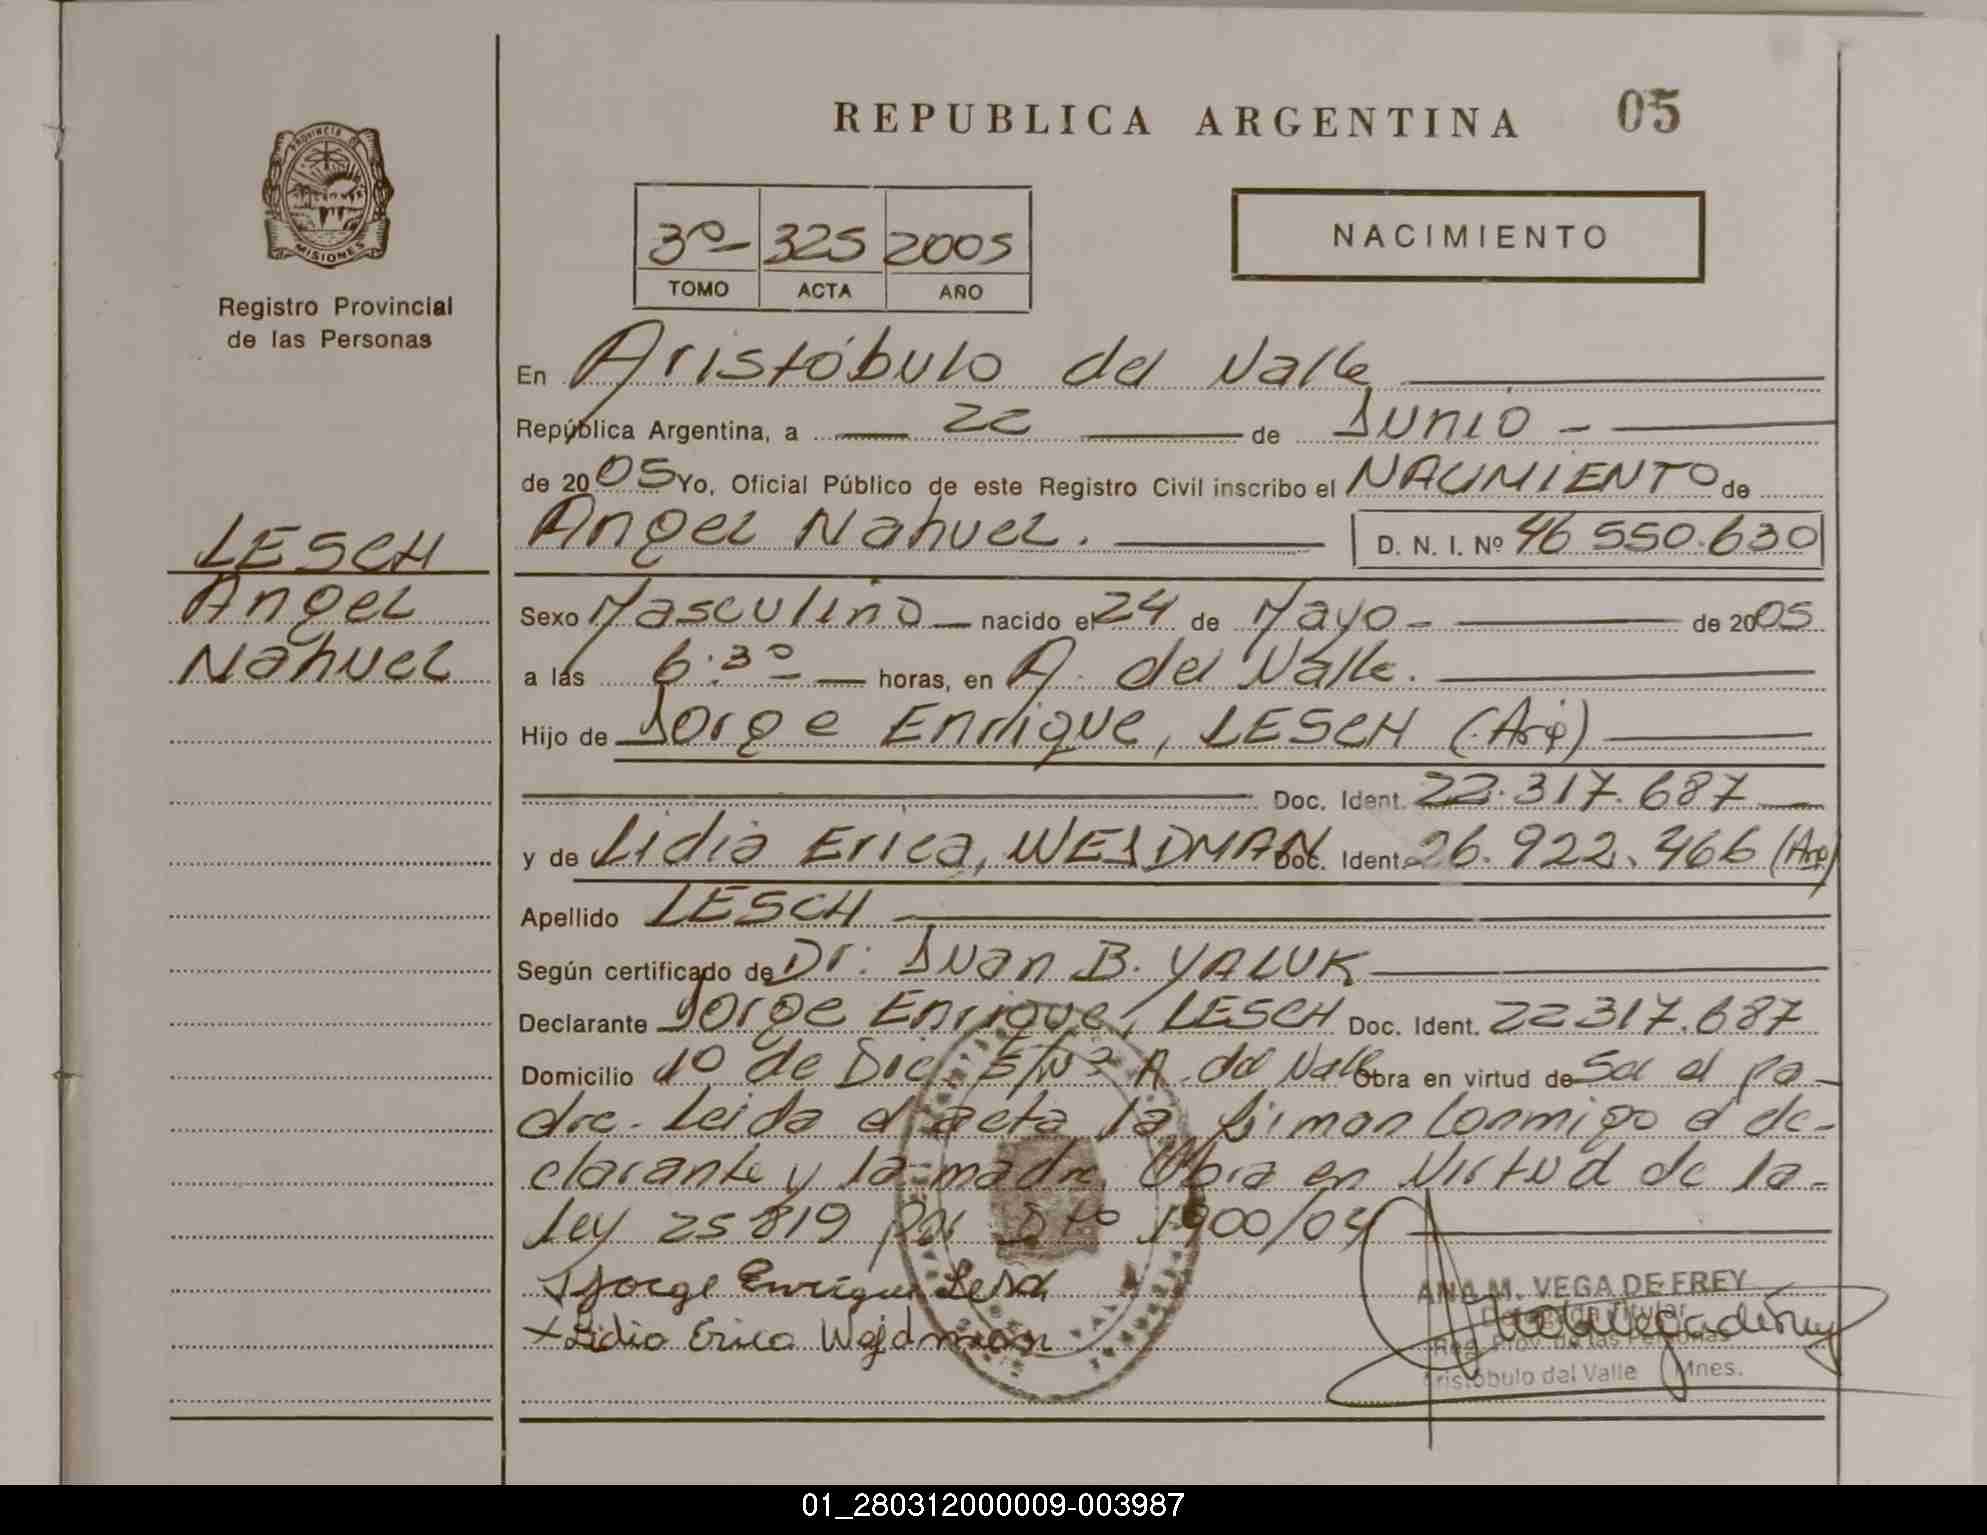 REPUBLICA ARGENTINA 05
PROVINCIA DE
MISIONES
Registro Provincial
de las Personas
3º- 325 2005
TOMO ACTA AÑO
NACIMIENTO
En Aristóbulo del Valle
República Argentina, a 22 de Junio -
de 2005 Yo, Oficial Público de este Registro Civil inscribo el NACIMIENTO de
LESCH
Angel
Nahuel
Angel Nahuel. D. N. I. Nº 46 550.630
Sexo Masculino nacido el 24 de Mayo - de 2005
a las 6:30 horas, en A. del Valle.
Hijo de Jorge Enrique, LESCH (Arg)
Doc. Ident. 22.317.687
y de Lidia Erica, WEJDMAN Doc. Ident. 26.922.466 (Arg)
Apellido LESCH
Según certificado de Dr. Juan B. YALUK
Declarante Jorge Enrique, LESCH Doc. Ident. 22317.687
Domicilio 10 de Dic. S/Nº A. del Valle Obra en virtud de Ser el pa-
dre. Leida el acta la firman Conmigo el de-
clarante y la madre. Obra en Virtud de la-
Ley 25819 por Dto 1900/04
Jorge Enrique Lesch
x Lidia Erica Wejdman
ANA M. VEGA DE FREY
Delegada Titular
Reg. Prov. de las Personas
Aristóbulo del Valle Mnes.
01_280312000009-003987